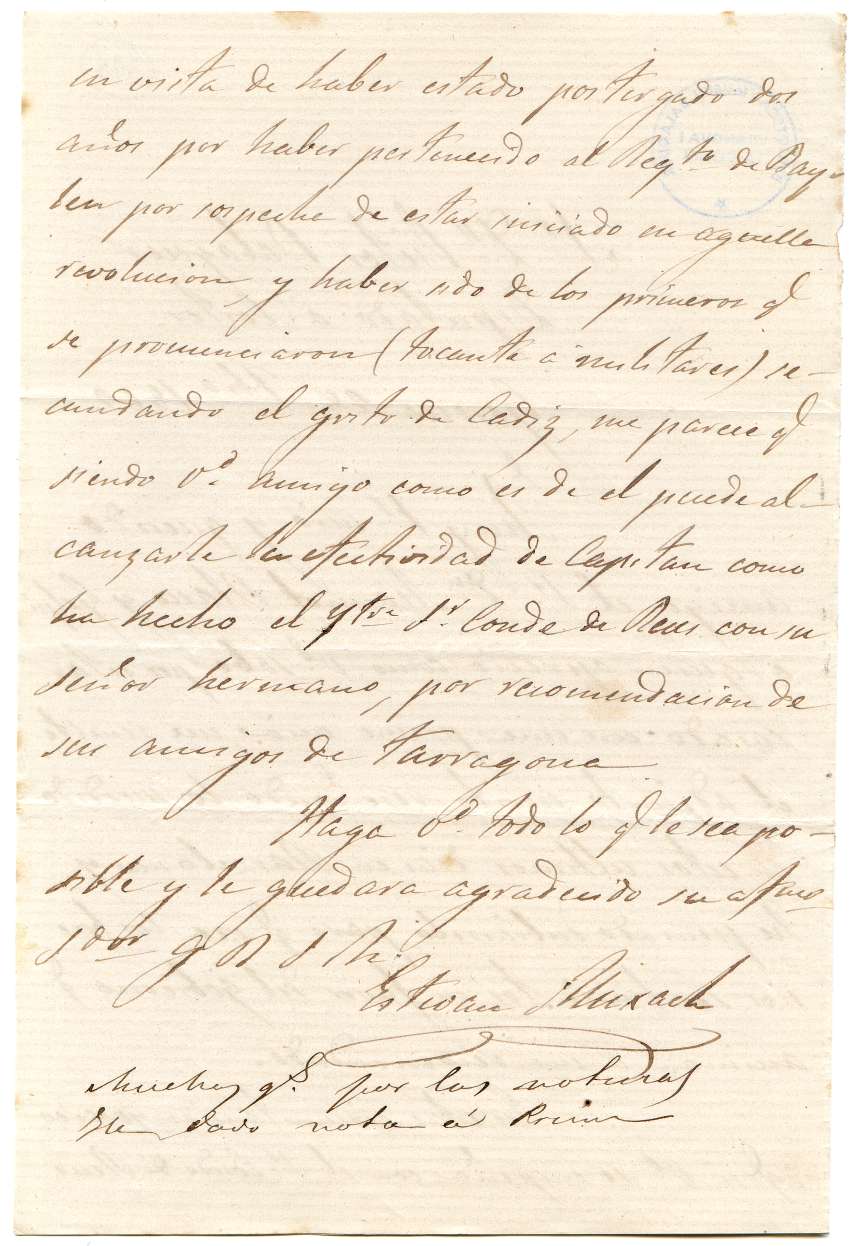 en vista de haber estado postergado dos
años por haber pertenecido al Regto de Bay-
len por sospeche de estar iniciado en aquella
revolucion, y haber sido de los primeros q
se pronunciaron (tocante á militares) se-
cundando el grito de Cadiz, me parece q
siendo Vd. amigo como es de el puede al-
canzarle la efectividad de Capitan como
ha hecho el Ytre Sr Conde de Reus con su
señor hermano, por recomendacion de
sus amigos de Tarragona
Haga Vd. todo lo q le sea po-
sible y le quedara agradecido su afmo
Sdor q B S M.
Estevan
Muchas gs. por las noticias
He dado nota á Prim